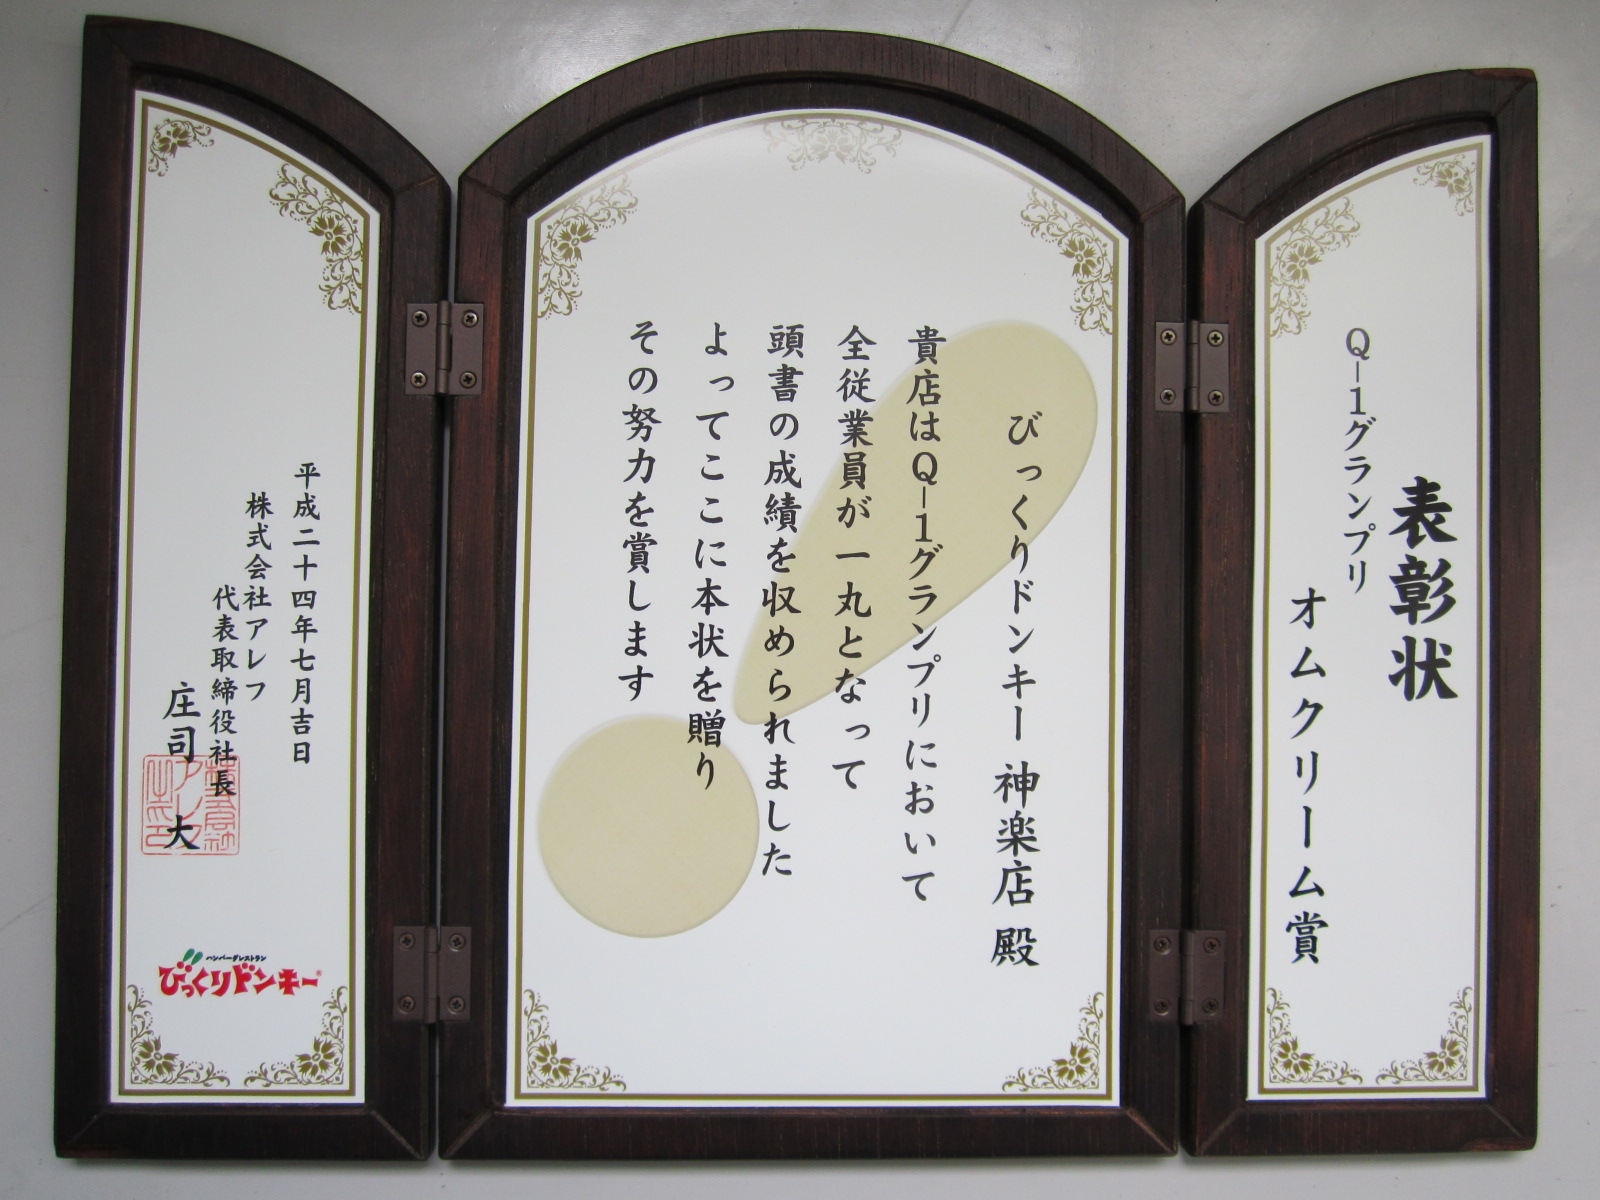 表彰状
Q-1グランプリ
オムクリーム賞
びっくりドンキー 神楽店 殿
貴店はQ-1グランプリにおいて
全従業員が一丸となって
頭書の成績を収められました
よってここに本状を贈り
その努力を賞します
平成二十四年七月吉日
株式会社アレフ
代表取締役社長
庄司 大
ハンバーグレストラン
びっくりドンキー